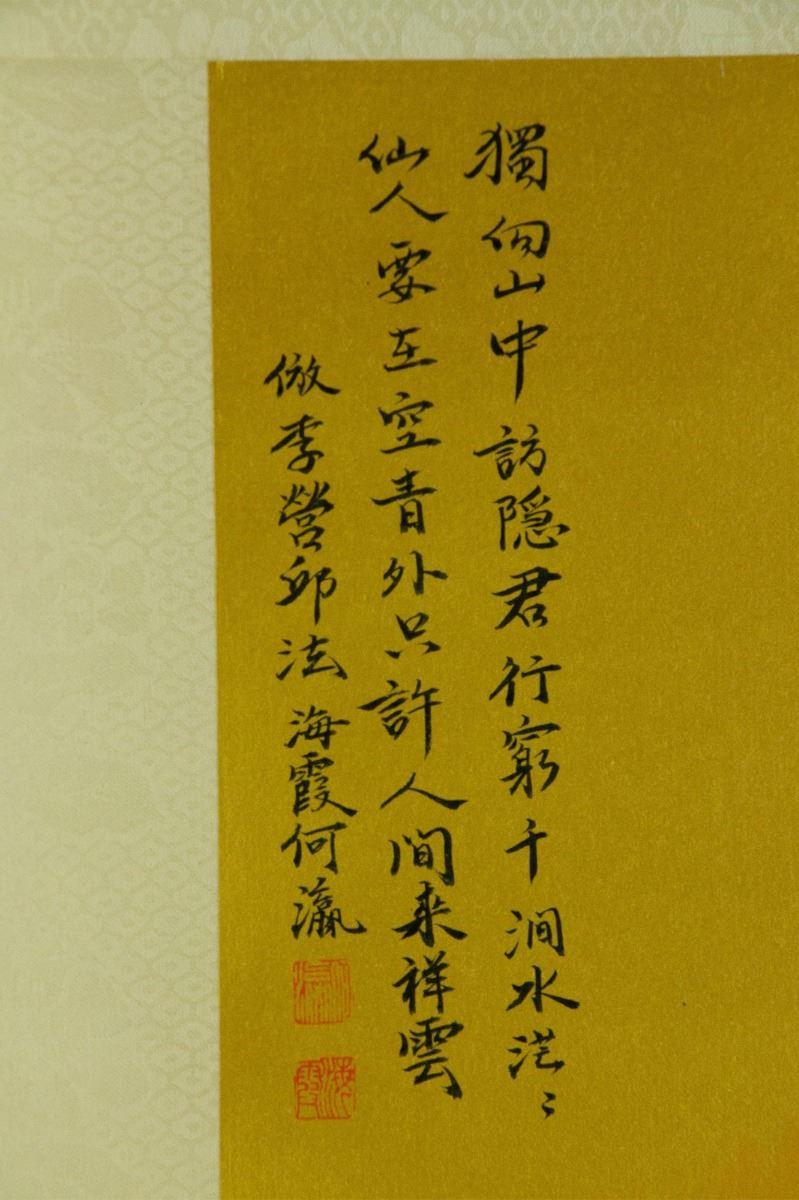 獨向山中訪隱君行窮千澗水茫〻
仙人要在空青外只許人間來祥雲
倣李營邱法 海霞何瀛
何瀛
海霞